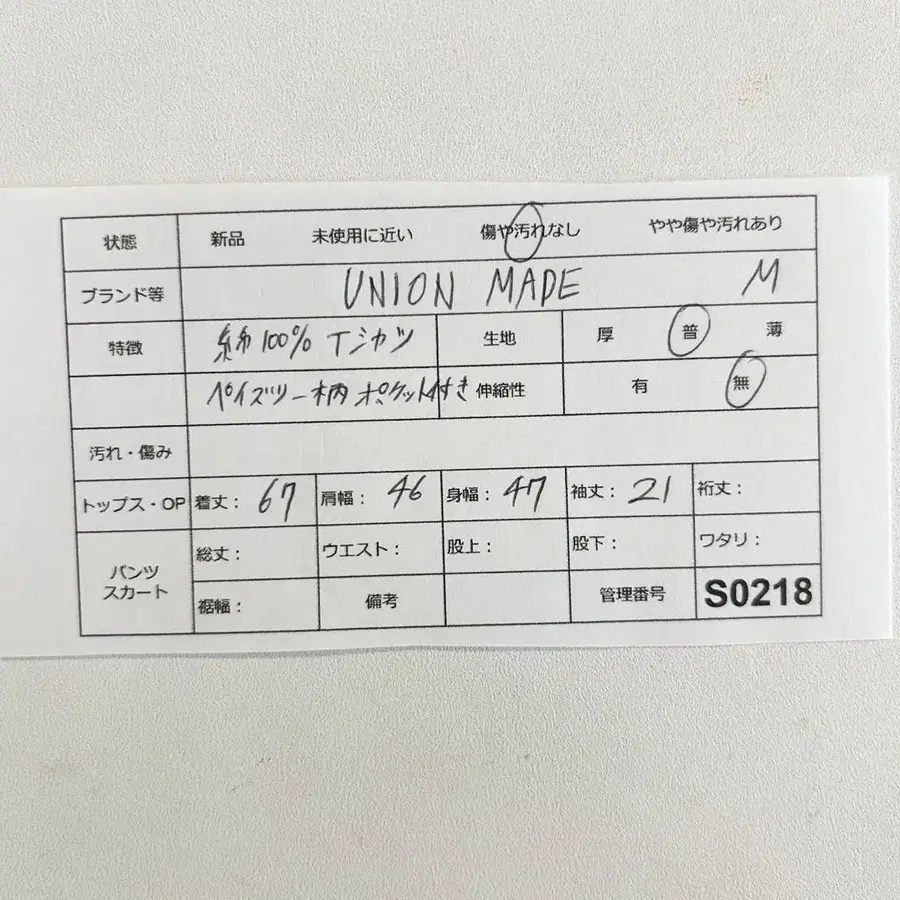 状態 新品 未使用に近い 傷や汚れなし やや傷や汚れあり
ブランド等 UNION MADE M
特徴 綿100% Tシャツ 生地 厚 普 薄
ペイズリー柄 ポケット付き 伸縮性 有 無
汚れ・傷み
トップス・OP 着丈: 67 肩幅: 46 身幅: 47 袖丈: 21 裄丈:
パンツ
スカート
総丈: ウエスト: 股上: 股下: ワタリ:
裾幅: 備考 管理番号 S0218